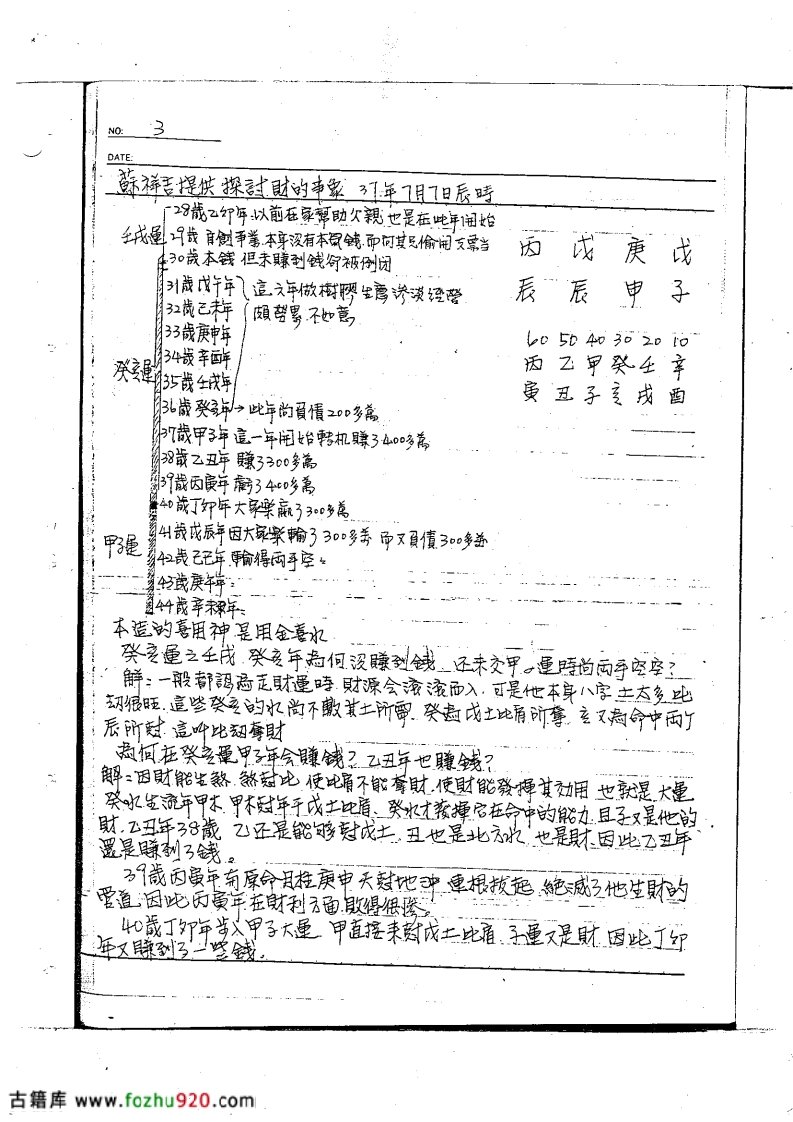 NO: 3
DATE:
蘇祥吉提供 探討財的事象 37年7月7日辰時
壬戌運
28歲乙卯年,以前在家幫助父親 也是在此年開始
29歲 自創事業,本身沒有本質錢,而向其兄偷開支票當
30歲 本錢 但未賺到錢卻被倒閉
丙 戊 庚 戊
辰 辰 申 子
60 50 40 30 20 10
丙 乙 甲 癸 壬 辛
寅 丑 子 亥 戌 酉
癸亥運
31歲戊午年 這六年做樹膠生意 滲淡經營
32歲己未年 頗勞累,不如萬
33歲庚申年
34歲辛酉年
35歲壬戌年
36歲癸亥年→此年尚負債200多萬
37歲甲子年 這一年開始轉机賺了400多萬
38歲乙丑年 賺了300多萬
39歲丙寅年 虧了400多萬
40歲丁卯年 大家樂贏了300多萬
甲子運
41歲戊辰年 因大家樂輸了300多萬 而又負債300多萬
42歲己巳年 輸得兩手空。
43歲庚午年。
44歲辛未年。
本造的喜用神是用金喜水
癸亥運之壬戌,癸亥年為何沒賺到錢,还未交甲子運時尚兩手空空?
解:一般都認為走財運時,財源会滾滾而入,可是他本身八字土太多比
劫很旺,這些癸亥的水尚不數其土所需,癸為戊土比肩所奪,亥又為命中兩個
辰所尅,這叫比劫奪財
為何在癸亥運甲子年会賺錢?乙丑年也賺錢?
解:因財能生煞,煞尅比,使比肩不能奪財,使財能發揮其功用,也就是大運
癸水生流年甲木,甲木尅年干戊土比肩,癸水才發揮它在命中的能力,且子又是他的
財,乙丑年38歲 乙还是能够尅戊土,丑也是北方水,也是財,因此乙丑年
還是賺到了錢。
39歲丙寅年 與原命月柱庚申 天尅地沖,連根拔起,絕滅了他生財的
管道,因此丙寅年在財利方面敗得很慘。
40歲丁卯年步入甲子大運,甲直接來尅戊土比肩,子運又是財,因此丁卯
年又賺到了一些錢。
古籍库 www.fozhu920.com